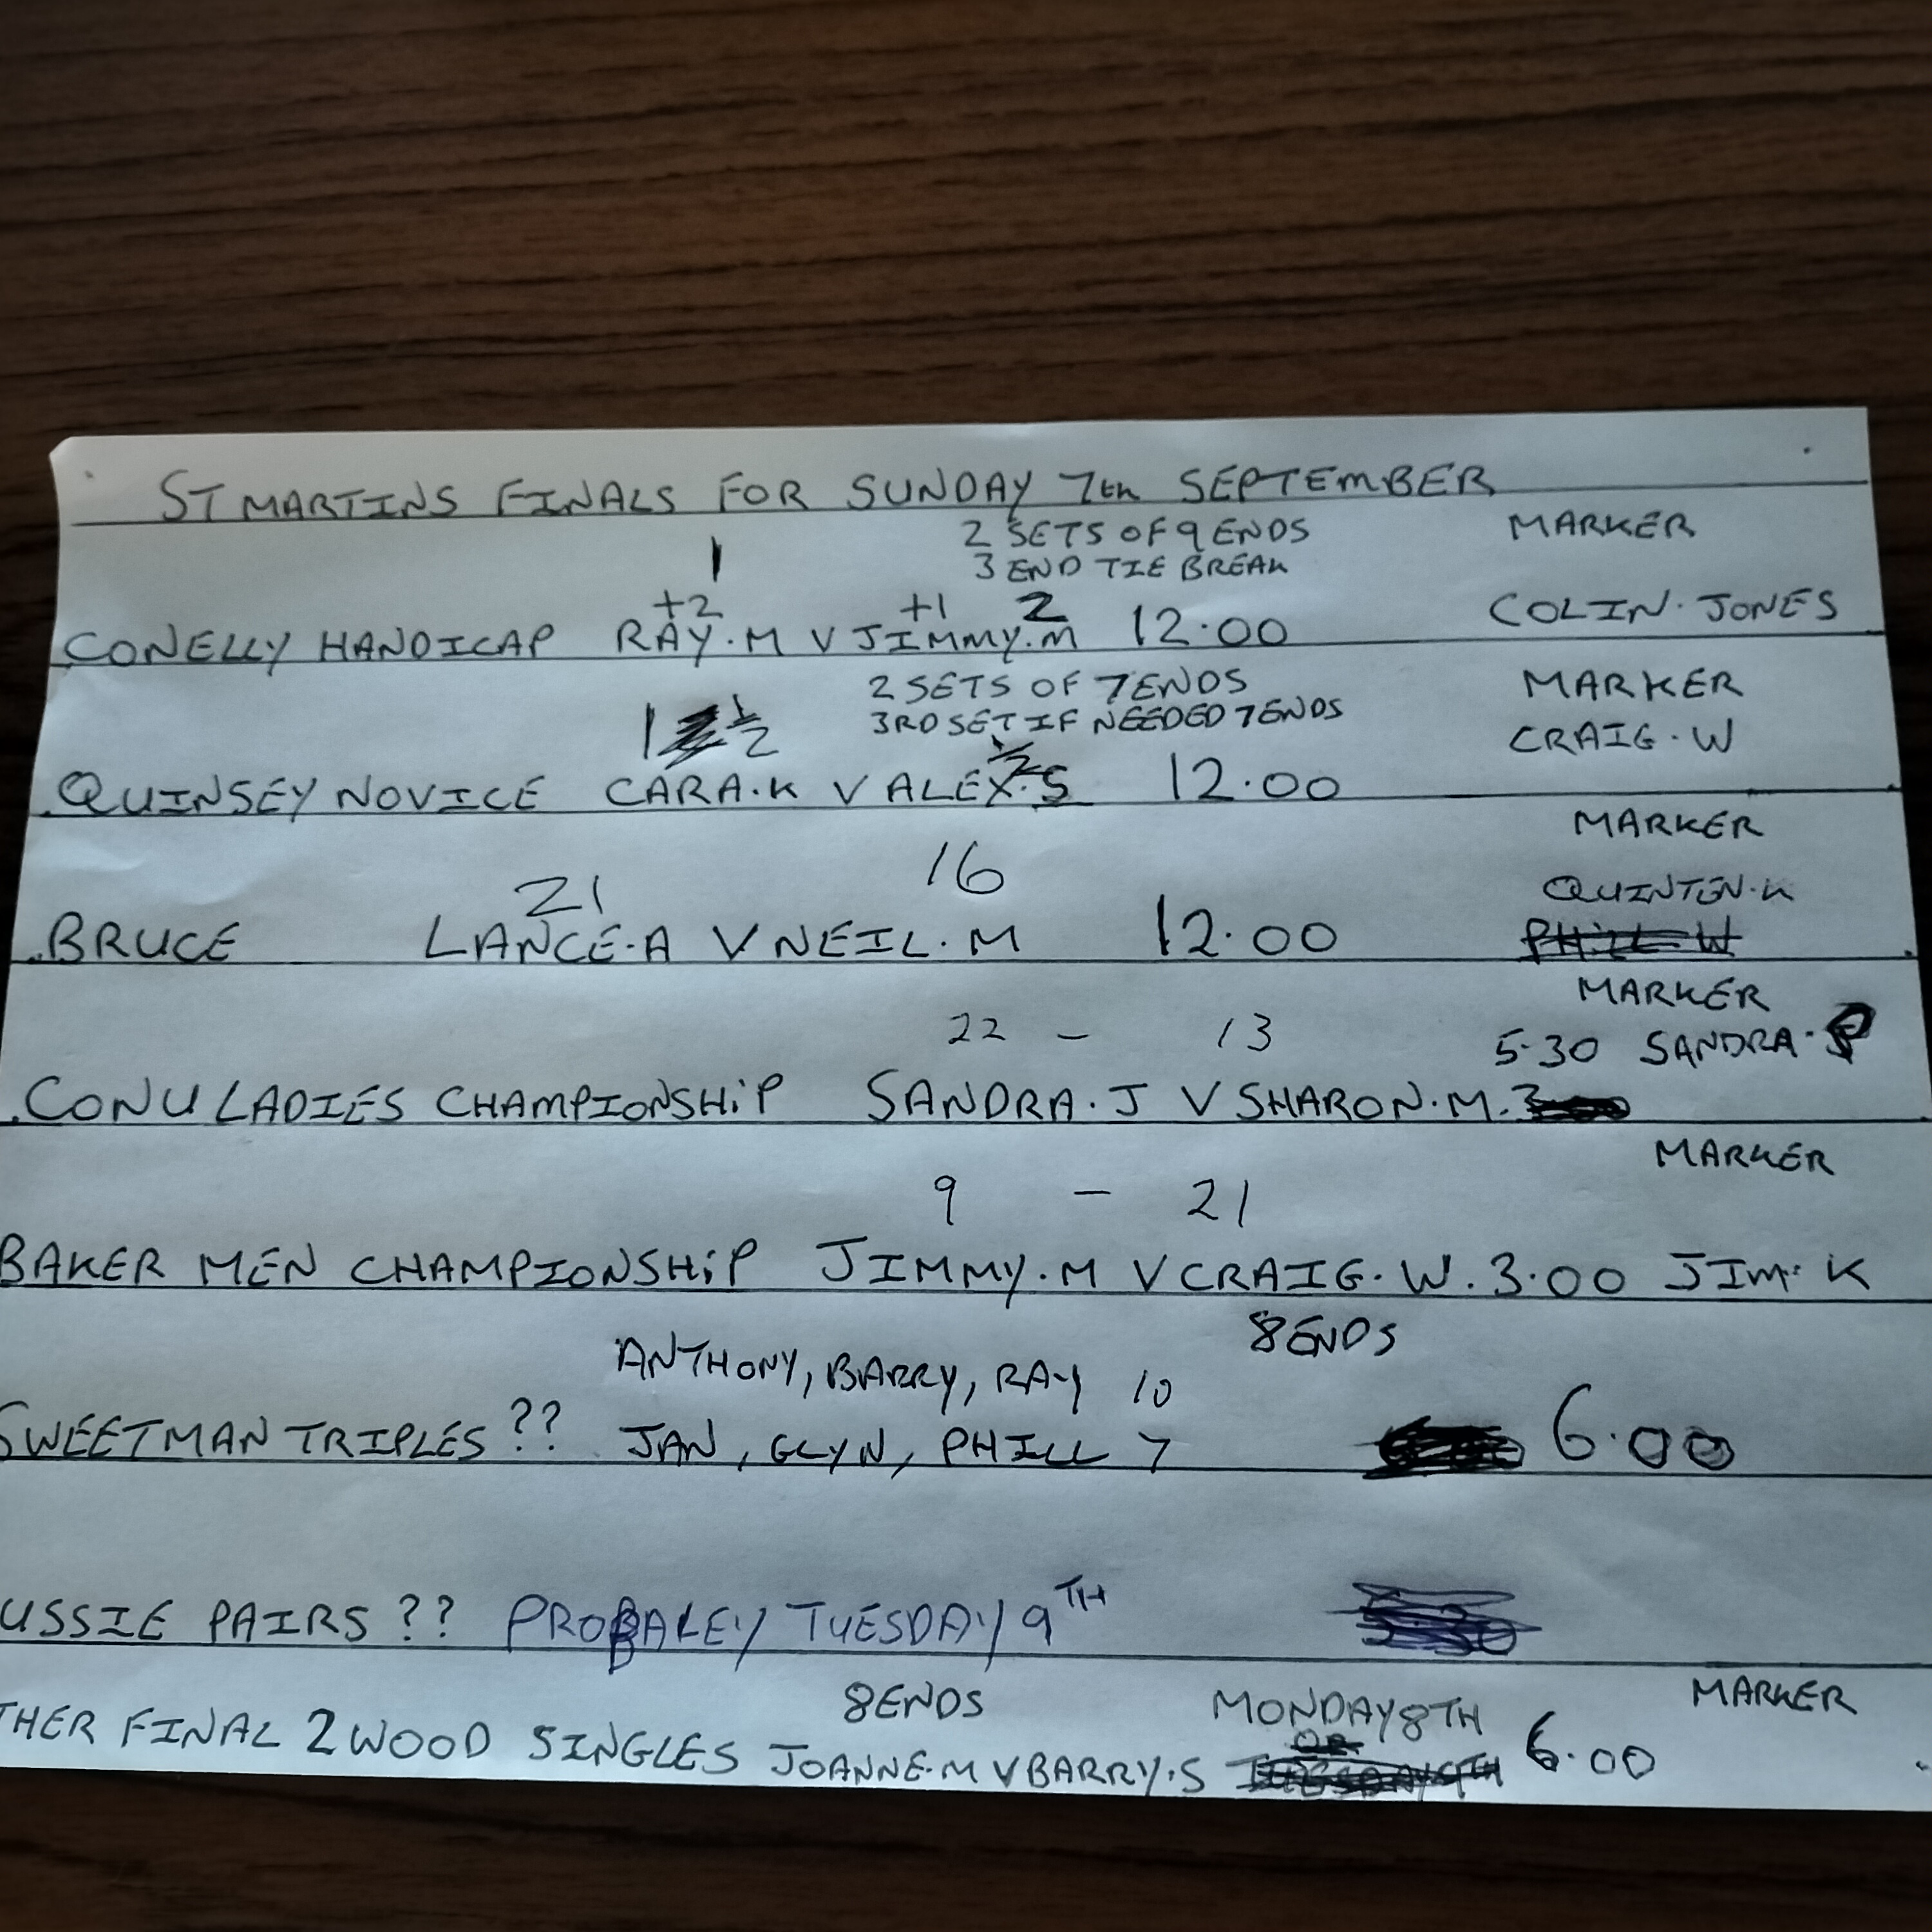 ST MARTINS FINALS FOR SUNDAY 7th SEPTEMBER
2 SETS OF 9 ENDS MARKER
1 3 END TIE BREAK
+2 +1 2 COLIN. JONES
CONELLY HANDICAP RAY.M V JIMMY.M 12.00
2 SETS OF 7 ENDS MARKER
1 ½ 3RD SET IF NEEDED 7 ENDS CRAIG.W
½
QUINSEY NOVICE CARA.K V ALEX.S 12.00
MARKER
21 16 QUINTEN.K
BRUCE LANCE.A V NEIL.M 12.00 PHILL W
MARKER
22 - 13 5.30 SANDRA.P
CONU LADIES CHAMPIONSHIP SANDRA.J V SHARON.M.
MARKER
9 - 21
BAKER MEN CHAMPIONSHIP JIMMY.M V CRAIG.W. 3.00 JIM. K
8 ENDS
ANTHONY, BARRY, RAY 10
SWEETMAN TRIPLES ?? JAN, GLYN, PHILL 7 6.00
USSIE PAIRS ?? PROBALEY TUESDAY 9TH 5.30
8 ENDS MONDAY 8TH MARKER
OR
THER FINAL 2 WOOD SINGLES JOANNE.M V BARRY.S TUESDAY 9TH 6.00